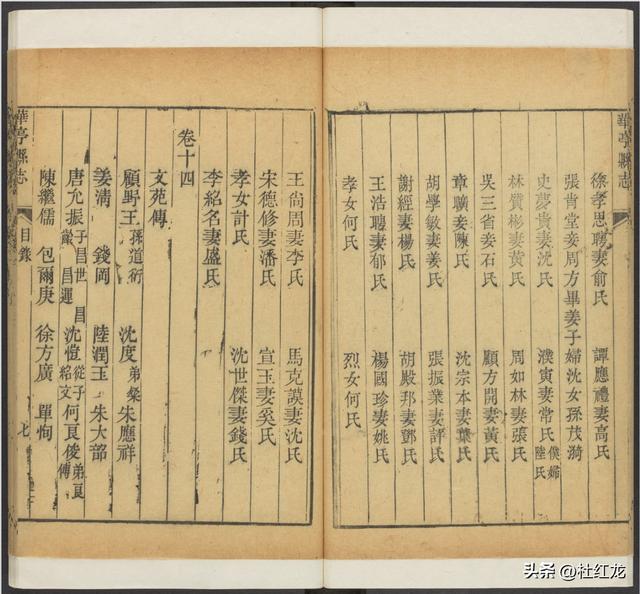 華亭縣志
徐孝思聘妻俞氏 譚應禮妻高氏
張肯堂妾周方畢姜子婦沈女孫茂漪
史夢貴妻沈氏 濮寅妻常氏 僕婦陸氏
林賁彬妻黃氏 周如林妻張氏
吳三省妾石氏 顧方開妻黃氏
章曠妾陳氏 沈宗本妻葉氏
胡學敏妻姜氏 張振業妻許氏
謝經妻楊氏 胡殿邦妻鄧氏
王浩聘妻郁氏 楊國珍妻姚氏
孝女何氏 烈女何氏
王尙周妻李氏 馬克謨妻沈氏
宋德修妻潘氏 宣玉妻奚氏
孝女計氏 沈世傑妻錢氏
李紹名妻盛氏
卷十四
文苑傳
顧野王 孫道術 沈度 弟粲 朱應祥
姜清 錢岡 陸潤玉 朱大部
唐允振 子昌世 昌齡 昌運 沈愷 從子紹文 何良俊 弟良傅
陳繼儒 包爾庚 徐方廣 單恂
華亭縣志 目錄 七
头条 @杜红龙